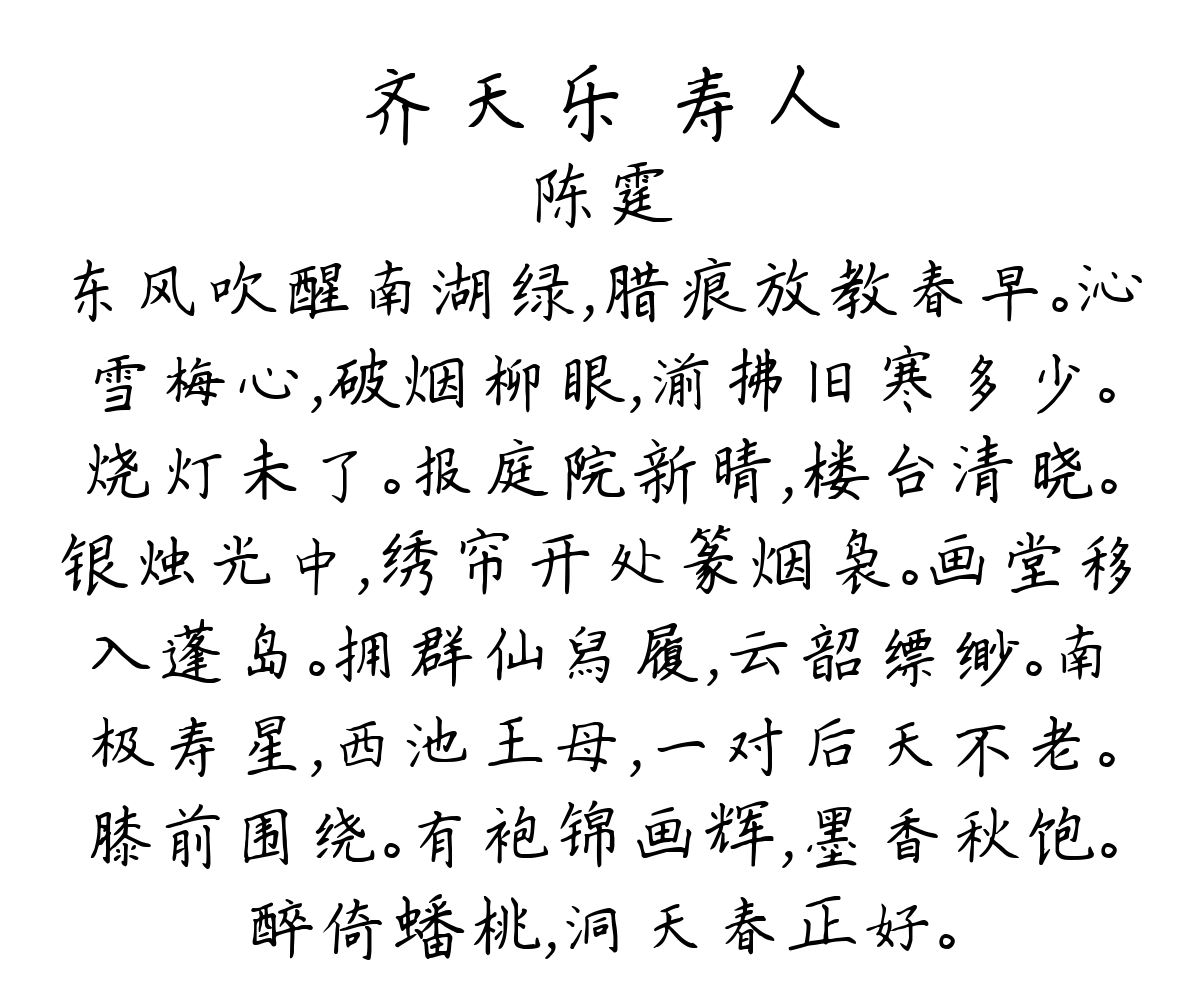 齐天乐 寿人
陈霆
东风吹醒南湖绿,腊痕放教春早。沁
雪梅心,破烟柳眼,湔拂旧寒多少。
烧灯未了。报庭院新晴,楼台清晓。
银烛光中,绣帘开处篆烟袅。画堂移
入蓬岛。拥群仙舄履,云韶缥缈。南
极寿星,西池王母,一对后天不老。
膝前围绕。有袍锦画辉,墨香秋饱。
醉倚蟠桃,洞天春正好。